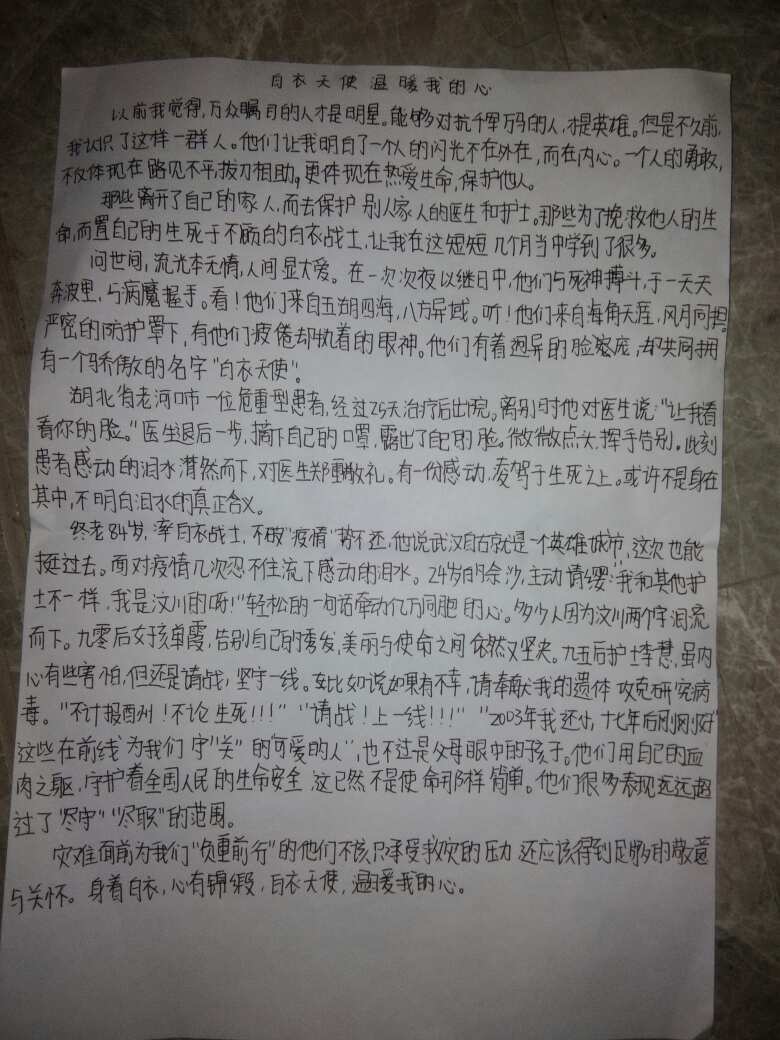 白衣天使温暖我的心
以前我觉得,万众瞩目的人才是明星。能够对抗千军万马的人,才是英雄。但是不久前,
我认识了这样一群人。他们让我明白了一个人的闪光不在外在,而在内心。一个人的勇敢,
不仅体现在路见不平,拔刀相助。更体现在热爱生命,保护他人。
那些离开了自己的家人,而去保护别人家人的医生和护士。那些为了挽救他人的生
命,而置自己的生死于不顾的白衣战士,让我在这短短几个月当中学到了很多。
问世间,流光本无情,人间显大爱。在一次次夜以继日中,他们与死神搏斗,于一天天
奔波里,与病魔握手。看!他们来自五湖四海,八方异域。听!他们来自海角天涯,风月同担。
严密的防护罩下,有他们疲倦却执着的眼神。他们有着迥异的脸庞,却共同拥
有一个骄傲的名字"白衣天使"。
湖北省老河口市一位危重型患者,经过25天治疗后出院。离别时他对医生说:"让我看
看你的脸。"医生退后一步,摘下自己的口罩,露出了自己的脸。微微点头,挥手告别。此刻
患者感动的泪水潸然而下,对医生郑重敬礼。有一份感动,凌驾于生死之上。或许不是身在
其中,不明白泪水的真正含义。
终老84岁,率白衣战士,不破"疫情"势不还,他说武汉自古就是一个英雄城市,这次也能
挺过去。面对疫情几次忍不住流下感动的泪水。24岁的佘沙,主动请缨:"我和其他护
士不一样,我是汶川的呀!"轻松的一句话牵动亿万同胞的心。多少人因为汶川两个字泪流
而下。九零后女孩单霞,告别自己的秀发,美丽与使命之间依然又坚决。九五后护士李慧,虽内
心有些害怕,但还是请战,坚守一线。比如说如果有不幸,请奉献我的遗体攻克研究病
毒。"不计报酬!不论生死!!!""请战!上一线!!!""2003年我还小,十七年后刚刚好"
这些在前线为我们守"关"的"可爱的人",也不过是父母眼中的孩子。他们用自己的血
肉之躯,守护着全国人民的生命安全,这已然不是使命那样简单。他们很多表现远远超
过了"尽守""尽职"的范围。
灾难面前为我们"负重前行"的他们不该只承受救灾的压力,还应该得到足够多的敬意
与关怀。身着白衣,心有锦缎,白衣天使,温暖我的心。